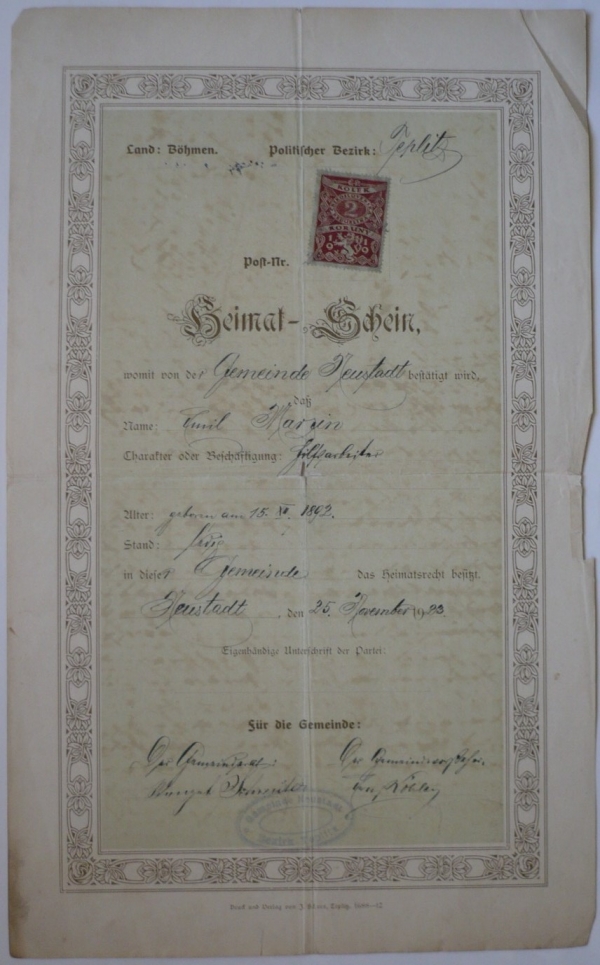 Land: Böhmen. Politischer Bezirk: Teplitz
KOLEK
2
KORUNY
Post-Nr.
Heimat-Schein,
womit von der Gemeinde Neustadt bestätigt wird,
daß
Name: Emil
Charakter oder Beschäftigung: Hilfsarbeiter
Alter: geboren am 15. 1892.
Stand: ledig
in dieser Gemeinde das Heimatsrecht besitzt.
Neustadt, den 25. November 1923
Eigenhändige Unterschrift der Partei:
Für die Gemeinde:
Der Gemeinderat: Der Gemeindevorsteher.
Wenzel
Gemeinde Neustadt
Druck und Verlag von